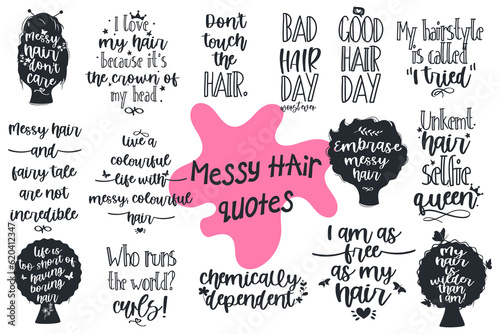 messy
hair
don't
care
I love
my hair
because it's
the crown of
my head.
Don't
touch
the
HAIR.
BAD
HAIR
DAY
GOOD
HAIR
DAY
My hairstyle
is called
"I tried"
Messy hair
and
fairy tale
are not
incredible
live a
colourful
life with
messy, colourful
hair
Messy HAir
quotes
EMBRASE
messy
hair
Unkemt
hair
selfie
queen.
life is
too short of
having
boring
hair
Who runs
the world?
curls!
chemically
dependent
I am as
free
as my
hair
my
hair is
wilder
than
I am!
Adobe Stock | #620412347